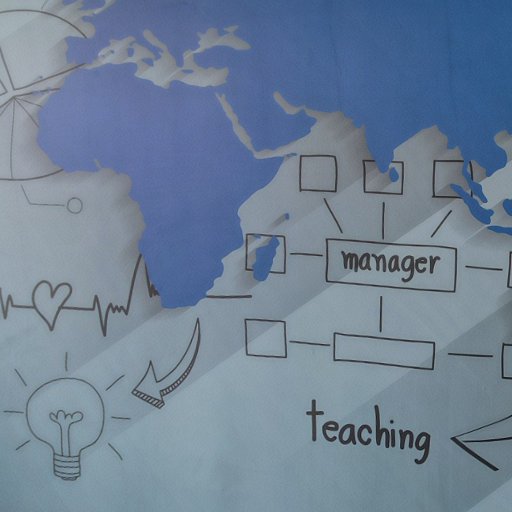 manager
teaching